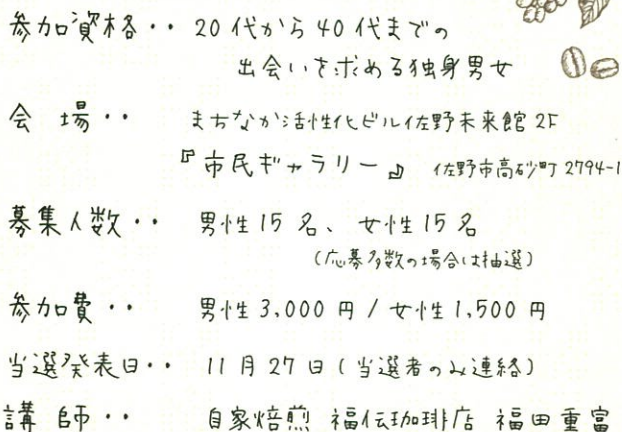 参加資格・・ 20代から40代までの
出会いを求める独身男女
会 場・・ まちなか活性化ビル佐野未来館 2F
『市民ギャラリー』 佐野市高砂町 2794-1
募集人数・・ 男性15名、女性15名
(応募多数の場合は抽選)
参加費・・ 男性3,000円/女性1,500円
当選発表日・・ 11月27日(当選者のみ連絡)
講 師・・ 自家焙煎 福伝珈琲店 福田重富